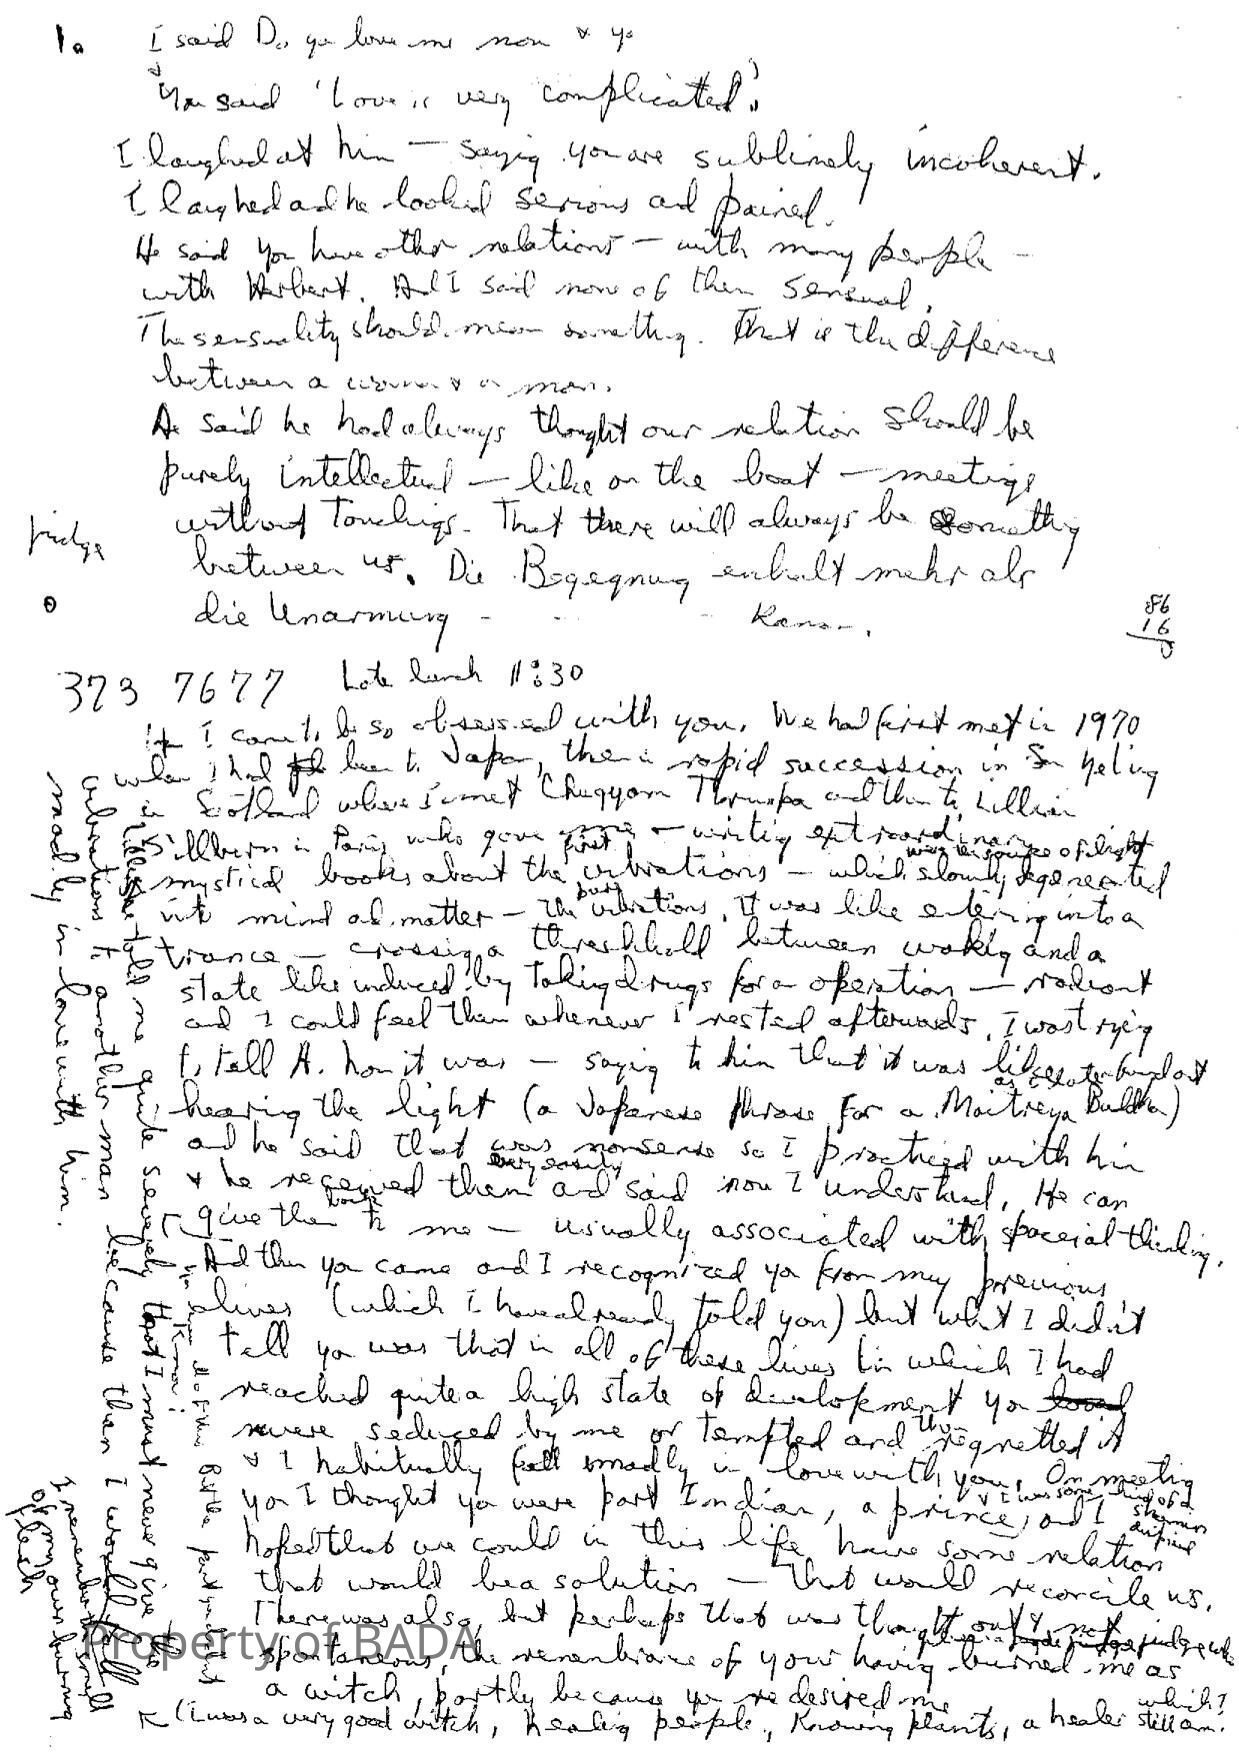 1.
I said Do you love me now & yo
You said 'Love is very complicated'.
I laughed at him — saying you are sublimely incoherent.
I laughed and he looked serious and pained.
He said you have other relations — with many people —
with Herbert. And I said none of them sensual.
The sensuality should mean something. That is the difference
between a woman & a man.
He said he had always thought our relation should be
purely intellectual — like on the boat — meetings
without Touchings. That there will always be something
between us. Die Begegnung enhalt mehr als
fridge
die Unarmung -
86
16
373 7677 Late lunch 11:30
I came to be so obsessed with you. We had first met in 1970
when I had been to Japan, then in rapid succession in Sam Yeling
in Scotland where I met Chugyam Thrungpa and then to Lillian
Sillburn in Paris who gave me — writing extraordinary
mystical books about the first vibrations — which slowly degenerated
was a source of light
into mind and matter — the pure vibrations. It was like entering into a
trance — crossing a threshhold between waking and a
state like induced by taking drugs for an operation — radiant
and I could feel them whenever I rested afterwards. I was trying
to tell A. how it was — saying to him that it was like
as I later found out
hearing the light (a Japanese phrase for a Maitreya Buddha)
and he said that was nonsense so I practiced with him
& he received them very easily and said now I understand. He can
give them back to me — usually associated with spacial thinking.
And then you came and I recognized you from my previous
alives (which I have already told you) but what I didn't
tell you was that in all of these lives in which I had
reached quite a high state of development you loved
were seduced by me or tempted and then regretted it
& I habitually fell madly in love with you. On meeting
you I thought you were part Indian, a prince, and I
& I was some kind of a
hoped that we could in this life have some relation
that would be a solution — that would reconcile us.
There was also, but perhaps that was thought out & not
spontaneous, the remembrance of your having burned me as
a witch, partly because you desired me
(I was a very good witch, healing people, Knowing plants, a healer which I still am.
Lillian told me quite severely that I must never give the
vibrations to another man because then I would fall
madly in love with him.
I remember the smell
of my own burning
flesh
Property of BADA